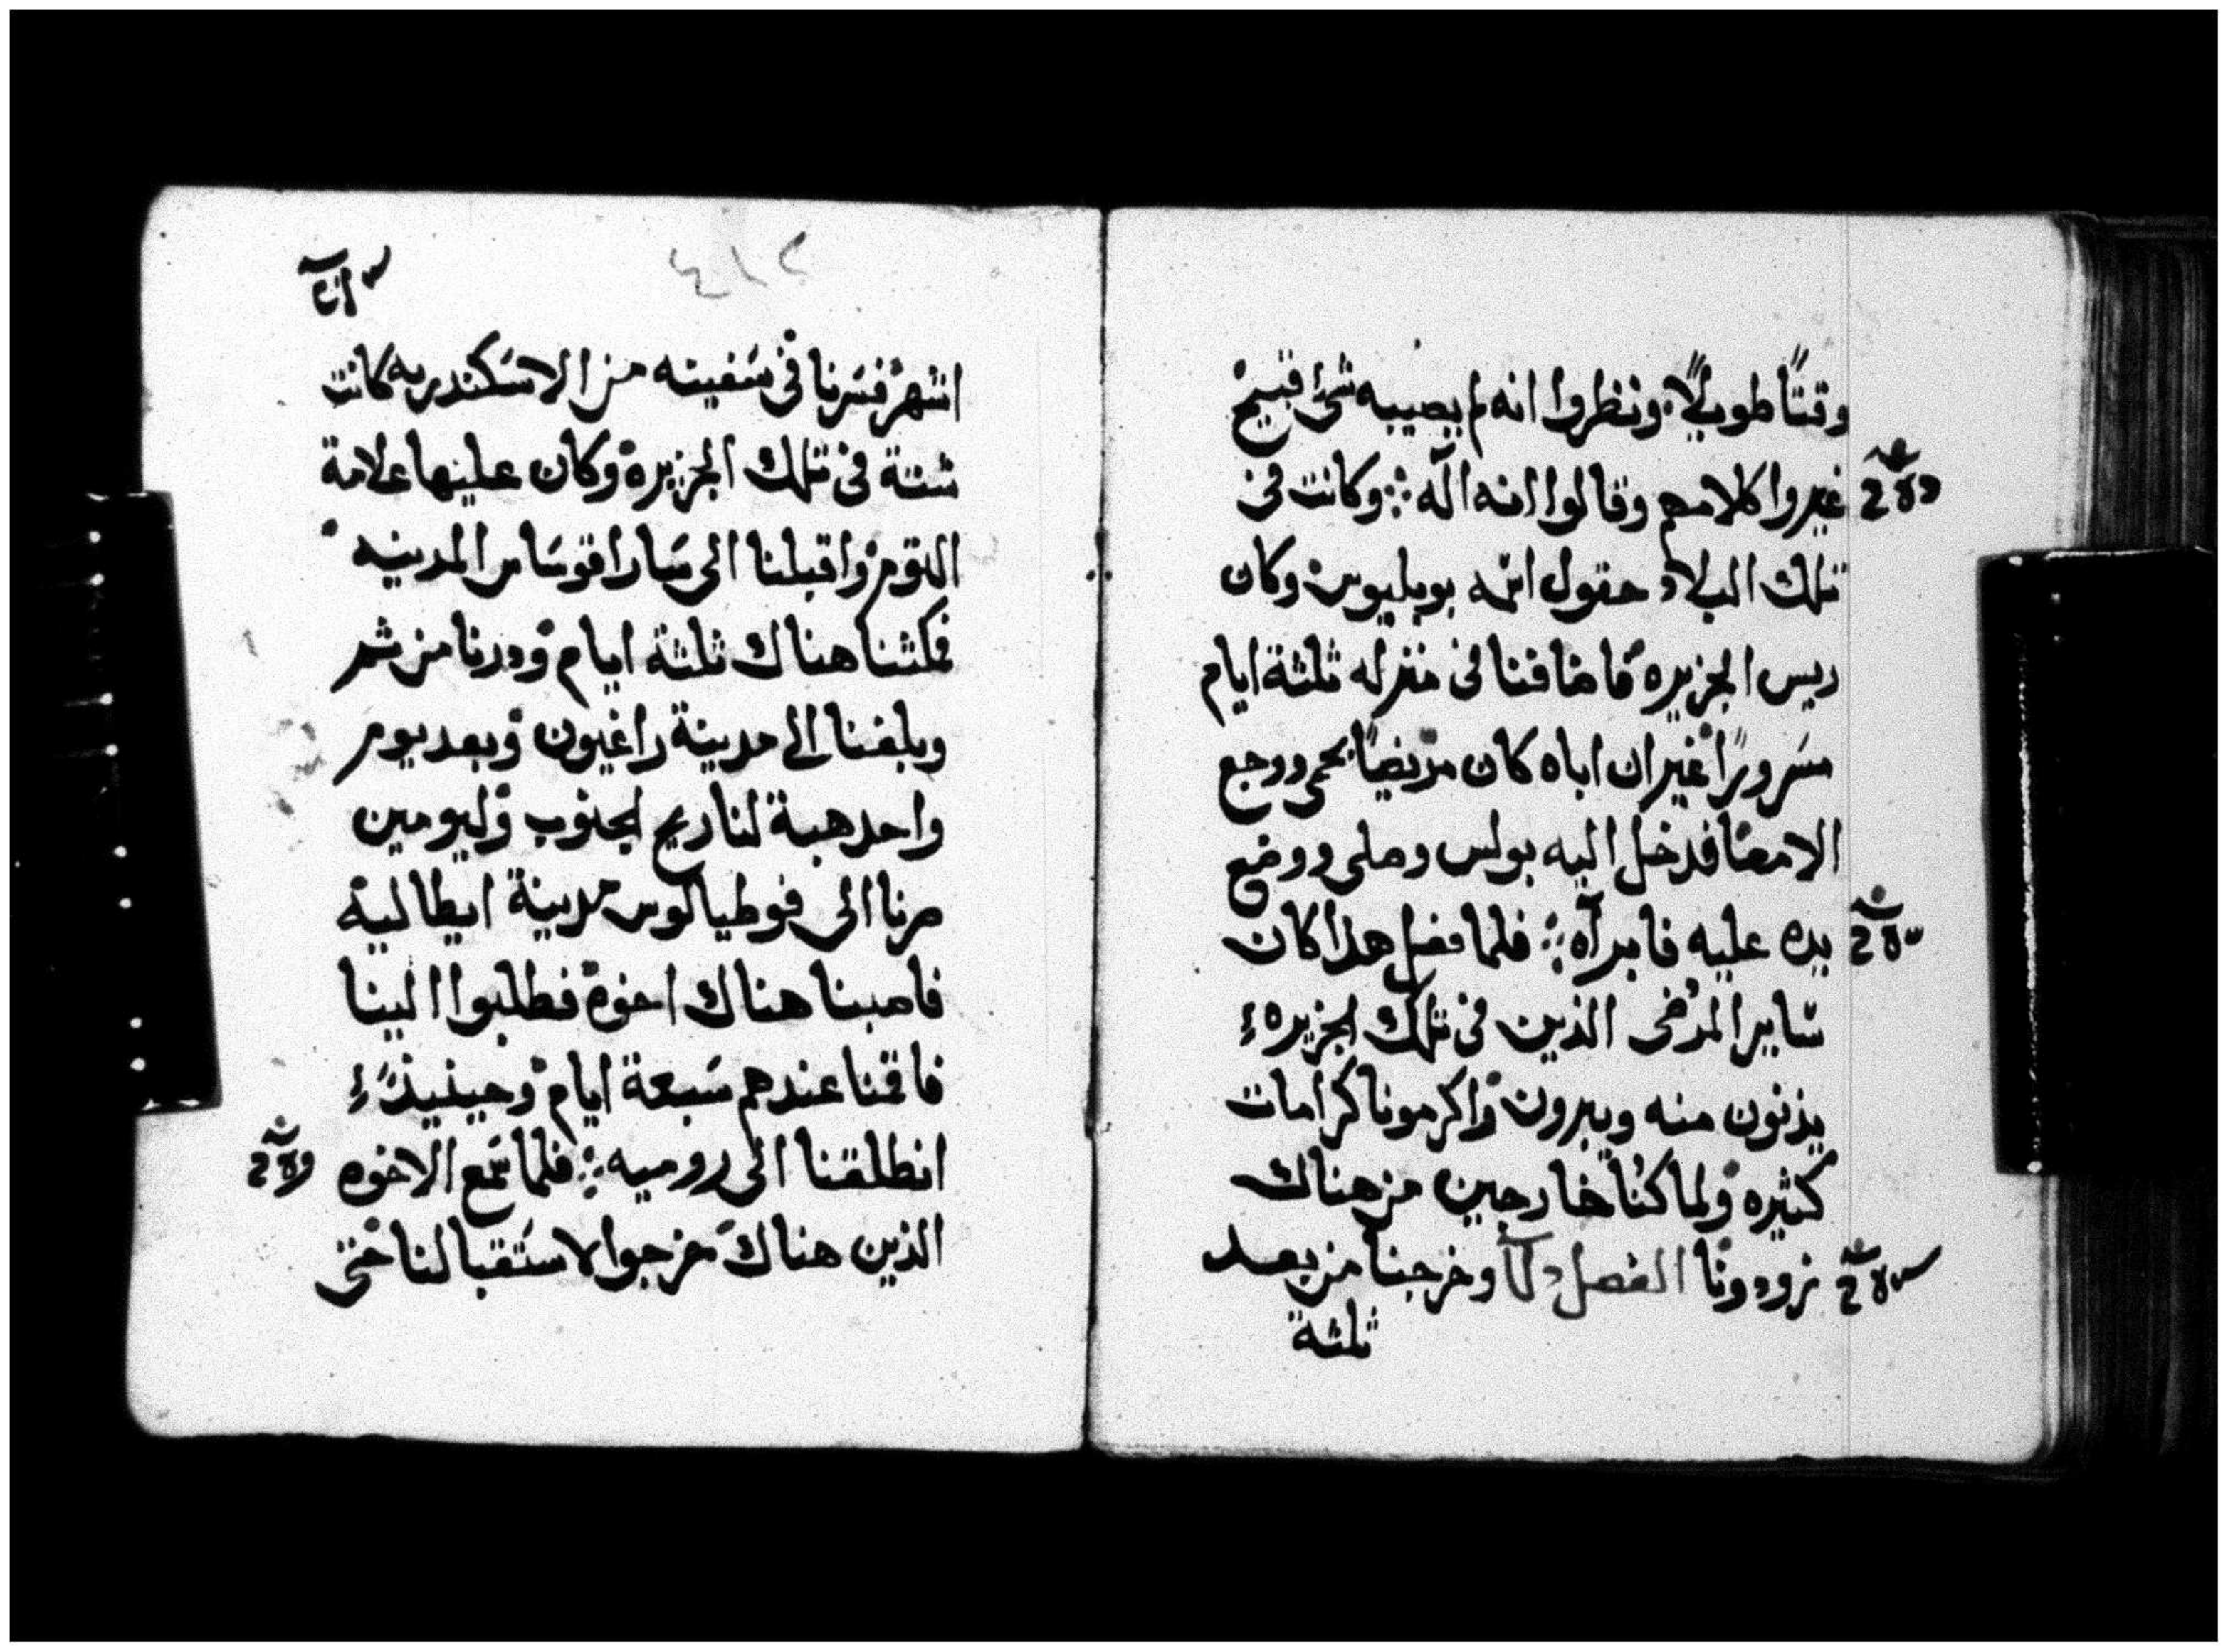 وقتًا طويلًا ونظروا انه لم يصيبه شئ قبيح
غيروا كلامهم وقالوا انه اله ؞ وكانت في
تلك البلاد حقول اسمه بوبليوس وكان
ريس الجزيره فاضافنا في منزله ثلثة ايام
مسرورًا غير ان اباه كان مريضًا بحمى ووجع
الامعا فدخل اليه بولس وصلى ووضع
يده عليه فابراه ؞ فلما فعل هذا كان
ساير المرضى الذين في تلك الجزيره
يدنون منه ويبرون واكرمونا كرامات
كثيره ولما كنا خارجين من هناك
زودونا الفصل وخرجنا من بعد
ثلثة
٢١٤
اشهر فسرنا في سفينه من الاسكندريه كانت
شتة في تلك الجزيرة وكان عليها علامة
التوم واقبلنا الى ساراقوسا المدينه
فمكثنا هناك ثلثة ايام ودرنا من ثم
وبلغنا الى مدينة راغيون وبعد يوم
واحد هبة لنا ريح الجنوب وليومين
صرنا الى فوطيالوس مدينة ايطالية
فاصبنا هناك اخوة فطلبوا الينا
فاقمنا عندهم سبعة ايام وحينيذ
انطلقنا الى روميه ؞ فلما سمع الاخوه
الذين هناك خرجوا لاستقبالنا حتى